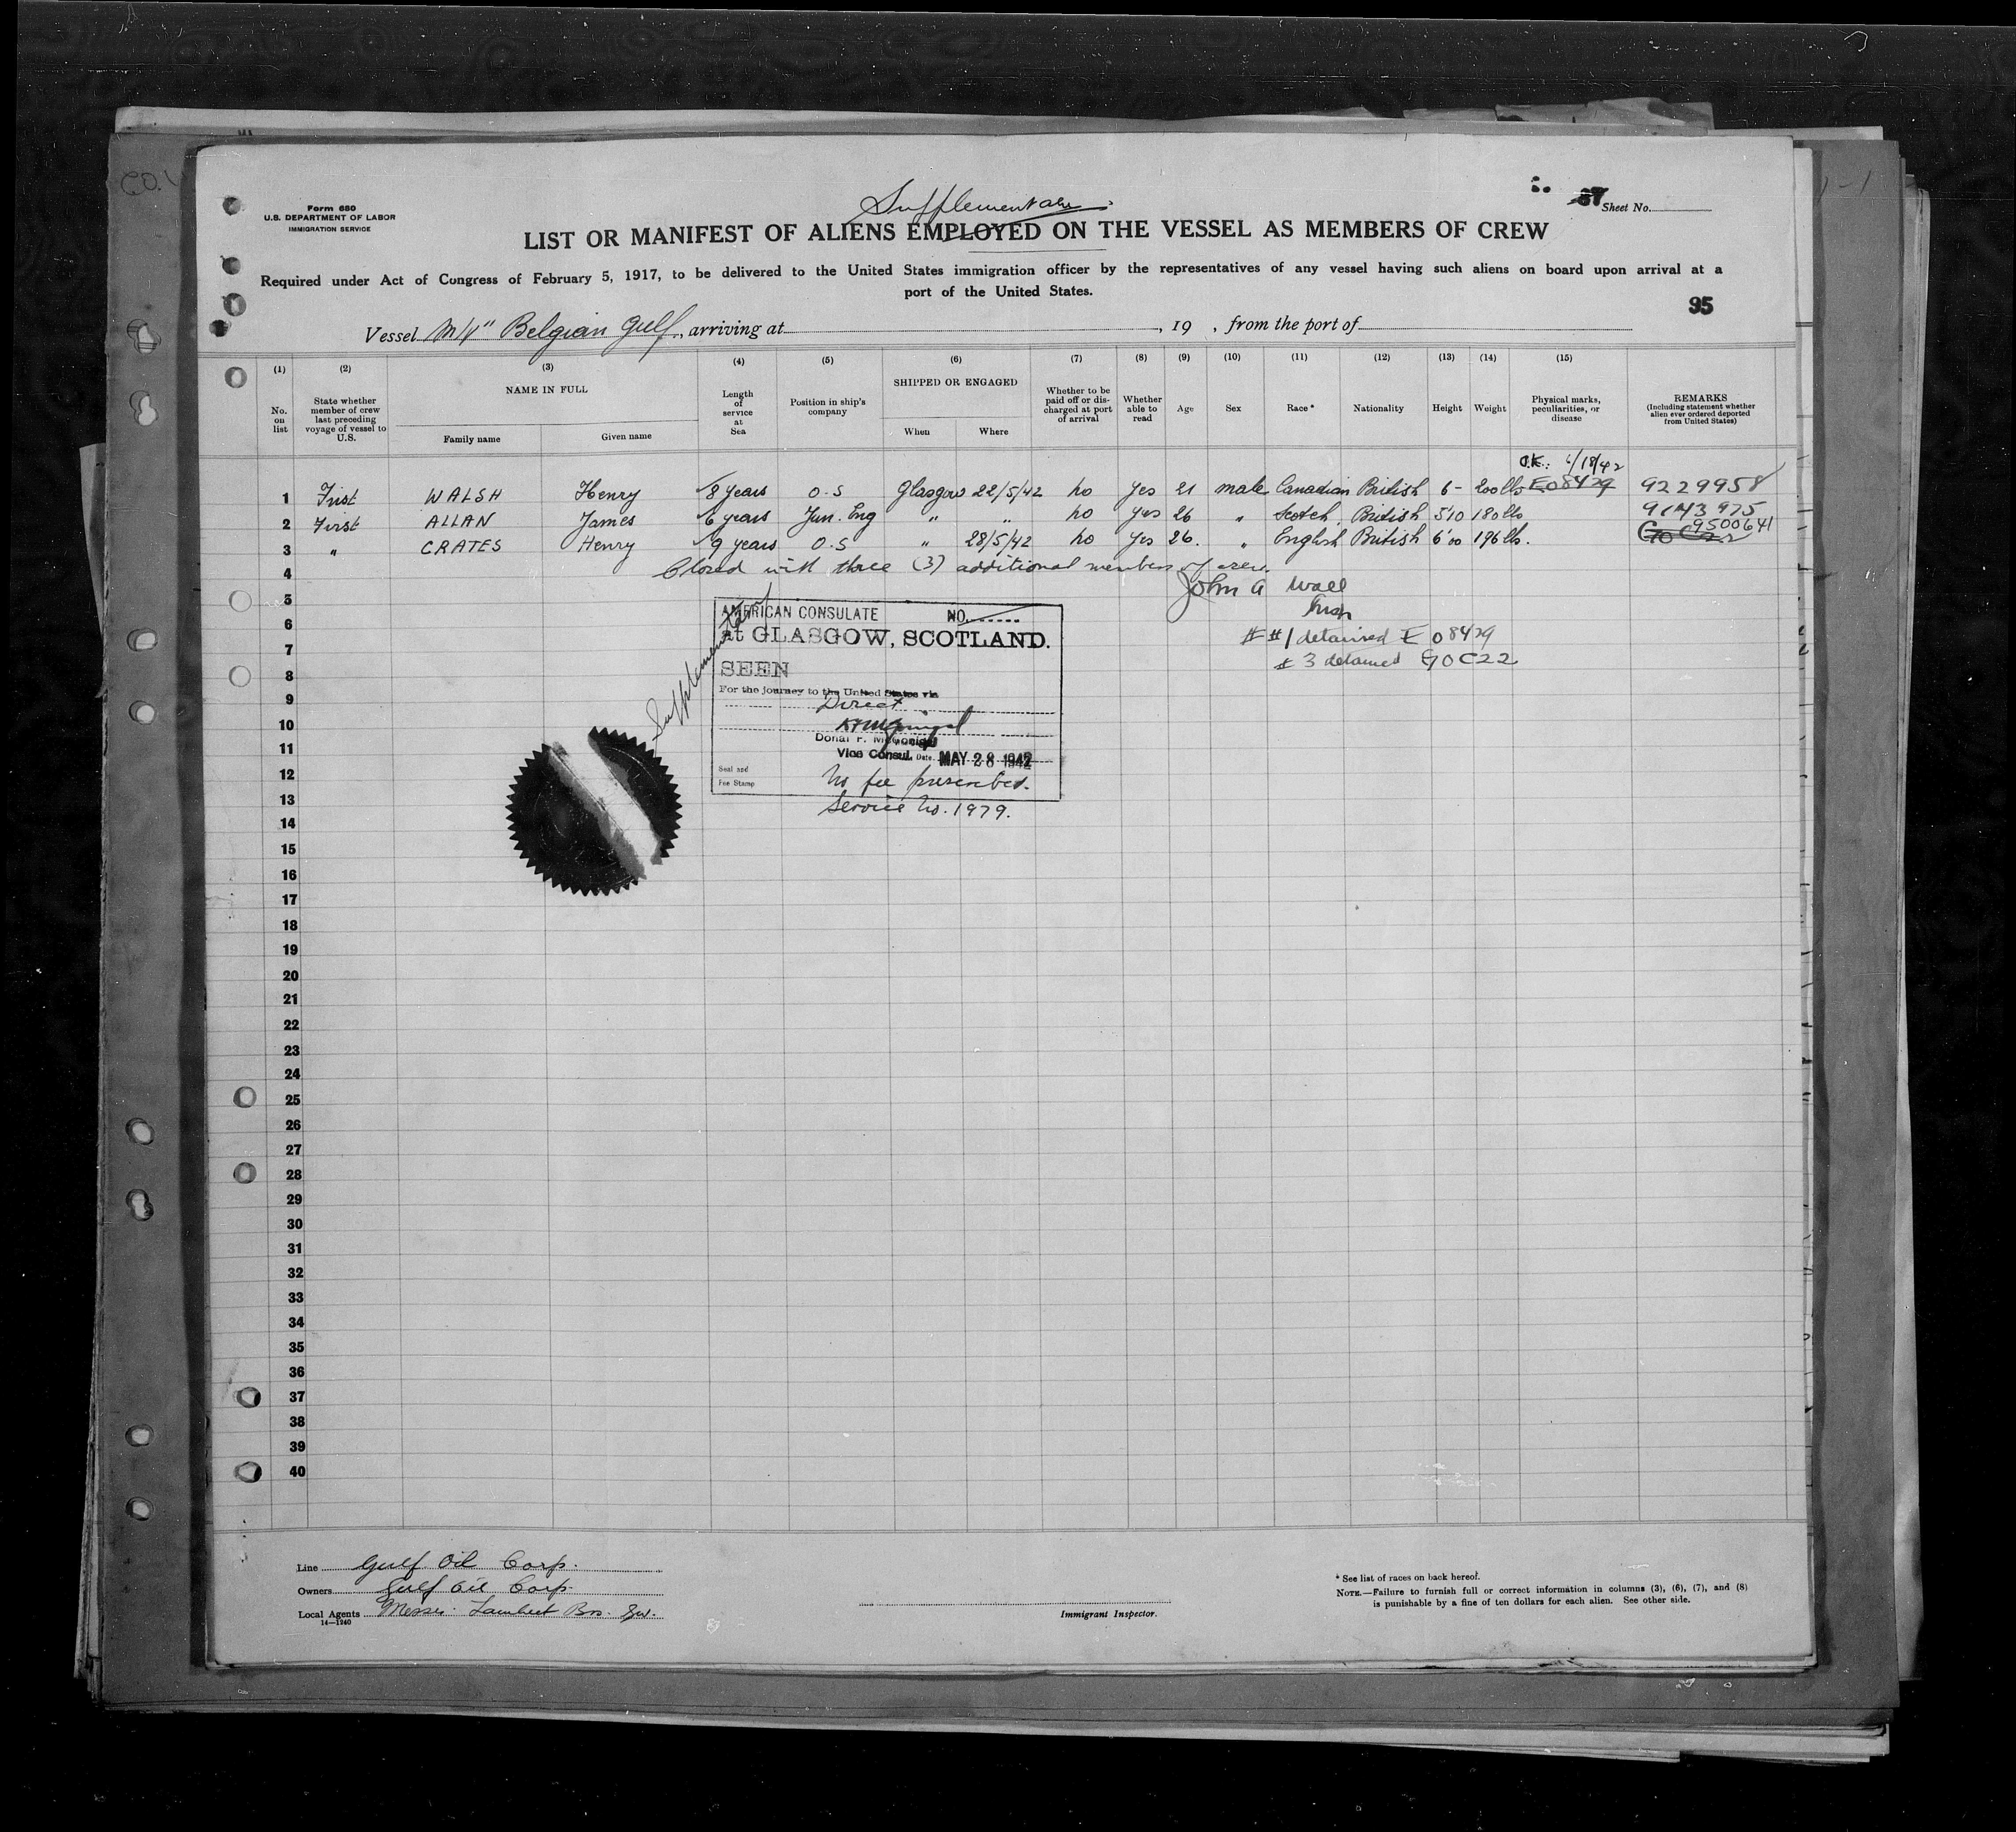 Supplementary
Form 680
U.S. DEPARTMENT OF LABOR
IMMIGRATION SERVICE
Sheet No.
LIST OR MANIFEST OF ALIENS EMPLOYED ON THE VESSEL AS MEMBERS OF CREW
Required under Act of Congress of February 5, 1917, to be delivered to the United States immigration officer by the representatives of any vessel having such aliens on board upon arrival at a
port of the United States.
95
Vessel M/V "Belgian Gulf, arriving at , 19 , from the port of
(1) (2) (3) (4) (5) (6) (7) (8) (9) (10) (11) (12) (13) (14) (15)
No. on list State whether member of crew last preceding voyage of vessel to U.S. NAME IN FULL Family name Given name Length of service at Sea Position in ship's company SHIPPED OR ENGAGED When Where Whether to be paid off or discharged at port of arrival Whether able to read Age Sex Race* Nationality Height Weight Physical marks, peculiarities, or disease REMARKS (Including statement whether alien ever ordered deported from United States)
O.K. 6/18/42
1 First WALSH Henry 8 years O.S Glasgow 22/5/42 no yes 21 male Canadian British 6- 200lbs E08429 9229958
2 First ALLAN James 6 years Jun. Eng " " no yes 26 " Scotch British 5'10 180lbs 9143975
3 " CRATES Henry 9 years O.S " 28/5/42 no yes 26. " English British 6'00 196lbs. GOC22 9500641
4 Closed with three (3) additional members of crew.
John A Wall
Insp
#1 detained E 08429
#3 detained GOC22
Supplementary
AMERICAN CONSULATE NO.
at GLASGOW, SCOTLAND.
SEEN
For the journey to the United States via
Direct
Donal F. McGonigal
Vice Consul. Date. MAY 28 1942
Seal and
Fee Stamp
No fee prescribed.
Service No. 1979.
5
6
7
8
9
10
11
12
13
14
15
16
17
18
19
20
21
22
23
24
25
26
27
28
29
30
31
32
33
34
35
36
37
38
39
40
Line Gulf Oil Corp.
Owners Gulf Oil Corp
Local Agents Messrs. Lambert Bros.
14—1240
Immigrant Inspector.
* See list of races on back hereof.
NOTE.—Failure to furnish full or correct information in columns (3), (6), (7), and (8)
is punishable by a fine of ten dollars for each alien. See other side.